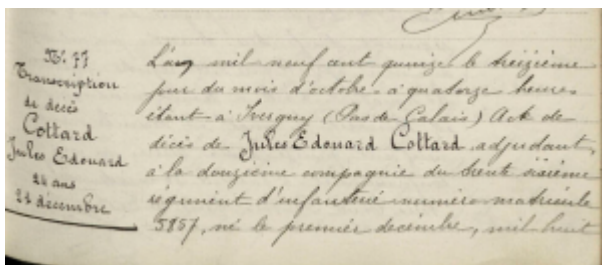 N° 77
Transcription
de décès
Cottard
Jules Edouard
24 ans
24 décembre
L'an mil neuf cent quinze le treizième
jour du mois d'octobre à quatorze heures
étant à Ivergny (Pas de Calais) Acte de
décès de Jules Edouard Cottard adjudant,
à la douzième compagnie du trente sixième
régiment d'infanterie numéro matricule
5857, né le premier décembre, mil huit